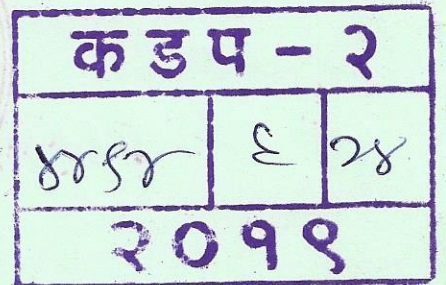 कडप - २
४४९४ ६ २४
२०१९